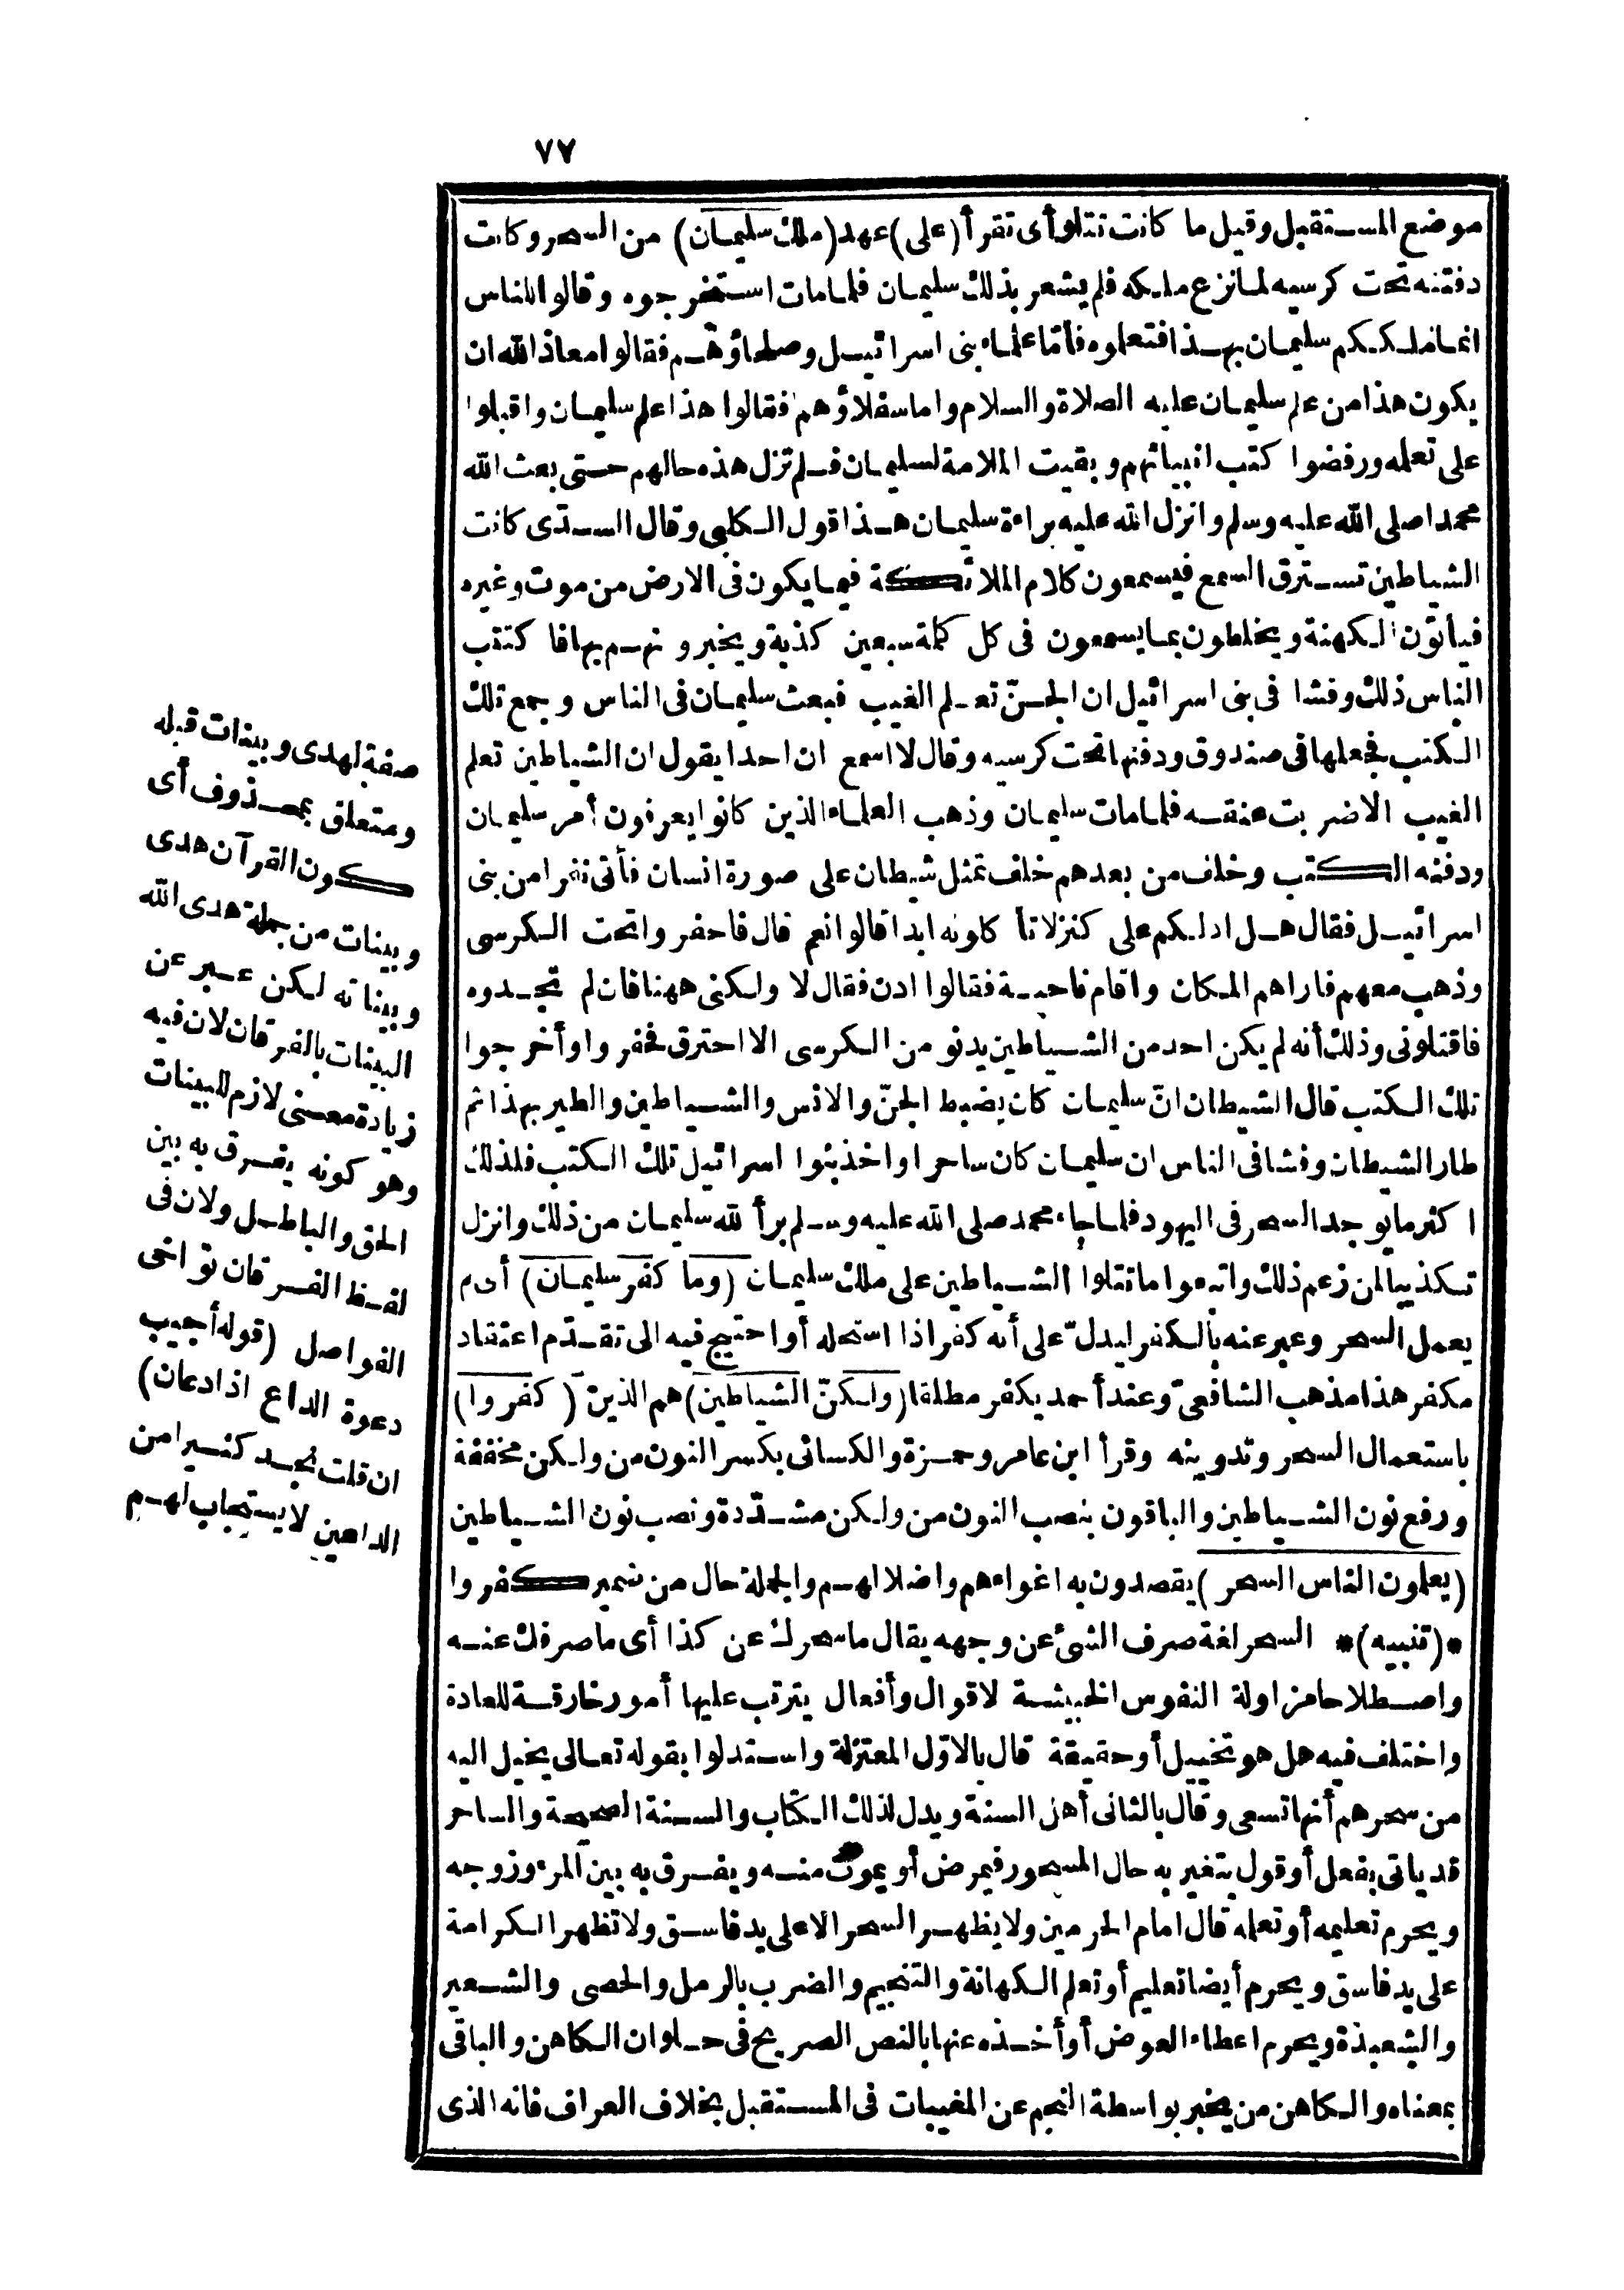 ٧٧
موضع المستقبل وقيل ما كانت تتلو أى تقرأ (على) عهد (ملك سليمان) من السحر وكانت
دفنته تحت كرسيه لما نزع ملكه فلم يشعر بذلك سليمان فلما مات استخرجوه وقالوا للناس
انما ملككم سليمان بهذا فتعلموه فأمّا علماء بنى اسرائيل وصلحاؤهم فقالوا معاذ الله ان
يكون هذا من علم سليمان عليه الصلاة والسلام واما سفلاؤهم فقالوا هذا علم سليمان واقبلوا
على تعلمه ورفضوا كتب انبيائهم وبقيت الملامة لسليمان فلم تزل هذه حالهم حتى بعث الله
محمدا صلى الله عليه وسلم وانزل الله عليه براءة سليمان هذا قول الكلبى وقال السدّى كانت
الشياطين تسترق السمع فيسمعون كلام الملائكة فيما يكون فى الارض من موت وغيره
فيأتون الكهنة ويخلطون بما يسمعون فى كل كلمة سبعين كذبة ويخبرونهم بها فاكتتب
الناس ذلك وفشا فى بنى اسرائيل ان الجنّ تعلم الغيب فبعث سليمان فى الناس وجمع تلك
الكتب فجعلها فى صندوق ودفنها تحت كرسيه وقال لا اسمع ان احدا يقول ان الشياطين تعلم
الغيب الا ضربت عنقه فلما مات سليمان وذهب العلماء الذين كانوا يعرفون أمر سليمان
ودفنه الكتب وخلف من بعدهم خلف تمثل شيطان على صورة انسان فأتى نفرا من بنى
اسرائيل فقال هل ادلكم على كنز لا تأكلونه ابدا قالوا نعم قال فاحفروا تحت الكرسى
وذهب معهم فاراهم المكان واقام فاحية فقالوا ادن فقال لا ولكنى ههنا فان لم تجدوه
فاقتلونى وذلك أنه لم يكن احد من الشياطين يدنو من الكرسى الا احترق فحفروا وأخرجوا
تلك الكتب قال الشيطان انّ سليمان كان يضبط الجنّ والانس والشياطين والطير بهذا ثم
طار الشيطان وفشا فى الناس ان سليمان كان ساحرا واخذ بنوا اسرائيل تلك الكتب فلذلك
اكثر ما يوجد السحر فى اليهود فلما جاء محمد صلى الله عليه وسلم برأ لله سليمان من ذلك وانزل
تكذيبا لمن زعم ذلك واتبعوا ما تتلوا الشياطين على ملك سليمان (وما كفر سليمان) أى م
يعمل السحر وعبر عنه بالكفر ليدلّ على أنه كفر اذا استحله أو احتيج فيه الى تقدّم اعتقاد
مكفر هذا مذهب الشافعىّ وعند أحمد يكفر مطلقا (ولكنّ الشياطين) هم الذين (كفروا)
باستعمال السحر وتدوينه وقرأ ابن عامر وحمزة والكسائى بكسر النون من ولكن مخففة
ورفع نون الشياطين والباقون بنصب النون من ولكن مشدّدة ونصب نون الشياطين
(يعلمون الناس السحر) يقصدون به اغواءهم واضلالهم والجملة حال من ضمير كفروا
*(تنبيه)* السحر لغة صرف الشئ عن وجهه يقال ما سحرك عن كذا أى ما صرفك عنه
واصطلاحا مزاولة النفوس الخبيثة لاقوال وأفعال يترتب عليها أمور خارقة للعادة
واختلف فيه هل هو تخييل أو حقيقة قال بالاوّل المعتزلة واستدلوا بقوله تعالى يخيل اليه
من سحرهم أنها تسعى وقال بالثانى أهل السنة ويدل لذلك الكتاب والسنة الصحيحة والساحر
قد ياتى بفعل أو قول يتغير به حال المسحور فيمرض أو يموت منه ويفرق به بين المرء وزوجه
ويحرم تعليمه أو تعلمه قال امام الحرمين ولا يظهر السحر الا على يد فاسق ولا تظهر الكرامة
على يد فاسق ويحرم أيضا تعليم أو تعلم الكهانة والتنجيم والضرب بالرمل والحصى والشعير
والشعبذة ويحرم اعطاء العوض أو أخذه عنها بالنص الصريح فى حلوان الكاهن والباقى
بمعناه والكاهن من يخبر بواسطة النجم عن المغيبات فى المستقبل بخلاف العراف فانه الذى
صفة لهدى وبينات قبله
ومتعلق بمحذوف أى
كون القرآن هدى
وبينات من جملة هدى الله
وبيناته لكن عبر عن
البينات بالفرقان لان فيه
زيادة معنى لازم للبينات
وهو كونه يفرق به بين
الحق والباطل ولان فى
لفظ الفرقان تواخى
الفواصل (قوله أجيب
دعوة الداع اذا دعان)
ان قلت نجد كثيرا من
الداعين لا يستجاب لهم